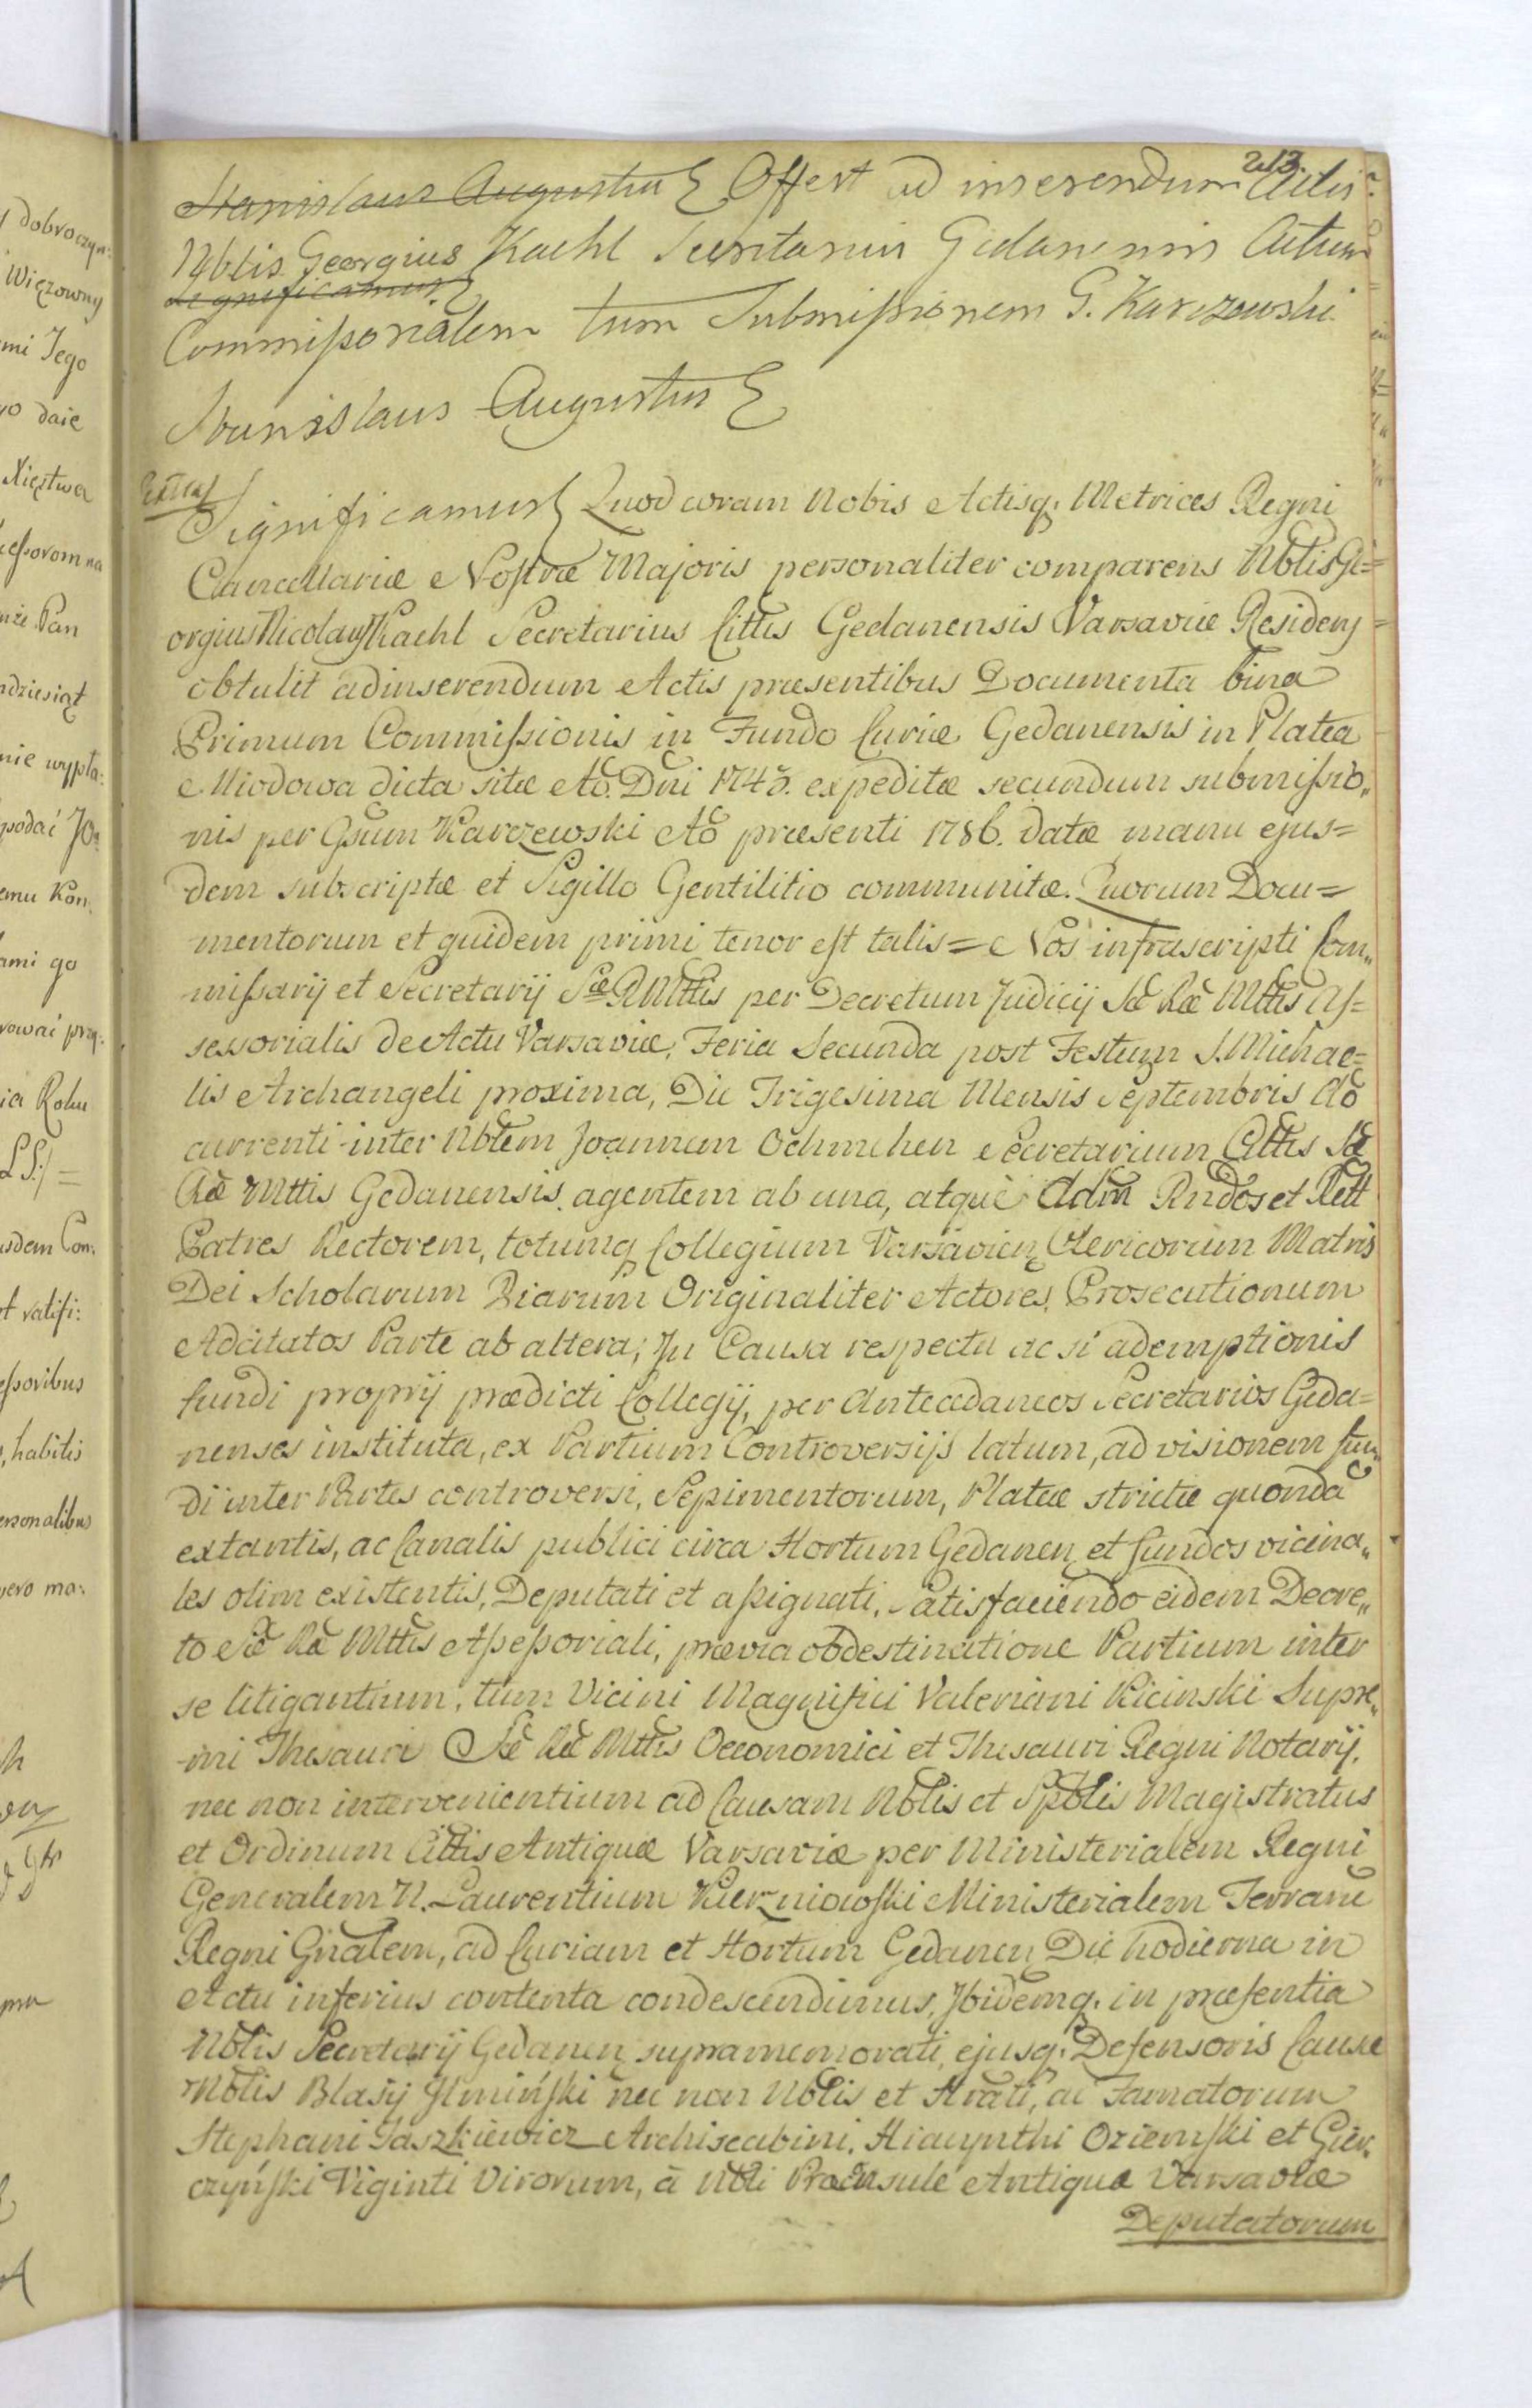 213
Stanislaus Augustus Offert ad inserendum Actis
Nbtis Georgius Kaehl Secretarius Gedanensis Actum
Significamus
Commissorialem tum Submissionem G. Karczewski
Stanislaus Augustus
Significamus Quod coram Nobis Actisq. Metrices Regni
Cancellariæ Nostræ Majoris personaliter comparens Nbtis Ge=
orgius Nicolaus Kaehl Secretarius Cittis Gedanensis Varsaviæ Residens
obtulit ad inserendum Actis præsentibus Documenta bina
Primum Commissionis in Fundo Curiæ Gedanensis in Platea
Miodowa dicta sitæ Ao. Dni 1743. expeditæ secundum submissio„
nis per Gsum Karczewski Ao præsenti 1786. datæ manu ejus=
dem subscriptæ et Sigillo Gentilitio communitæ. Quorum Docu=
mentorum et quidem primi tenor est talis = Nos infrascripti Com„
missarij et Secretarij Sæ R Mttis per Decretum Judicij Sæ Ræ Mttis As=
sessorialis de Actu Varsaviæ, Feria Secunda post Festum S. Michae=
lis Archangeli proxima, Die Trigesima Mensis Septembris Ao
currenti inter Nbtem Joannem Secretarium Cittis Sæ
Ræ Mttis Gedanensis agentem ab una, atque Adm Rndos et Rett
Patres Rectorem, totumq Collegium Varsavien Clericorum Matris
Dei Scholarum Piarum Originaliter Actores, Prosecutionum
Adcitatos Parte ab altera; In Causa respectu ac si ademptionis
fundi proprij prædicti Collegij, per Antecedaneos Secretarios Geda=
nenses instituta, ex Partium Controversijs latum, ad visionem fun„
di inter Partes controversi, Sepimentorum, Plateæ strictæ quonda
extantis, ac Canalis publici circa Hortum Gedanen et fundos vicina„
les olim existentis, Deputati et assignati, Satisfaciendo eidem Decre„
to Sæ Ræ Mttis Assessoriali, prævia obdestinatione Partium inter
se litigantium, tum Vicini Magnifici Valeriani Kicinski Supre„
mi Thesauri Sæ Ræ Mttis Oeconomici et Thesauri Regni Notarij,
nec non intervenientium ad Causam Nbtis et Spbtis Magistratus
et Ordinum Cittis Antiquæ Varsaviæ per Ministerialem Regni
Generalem N. Laurentium Ministerialem Terrarū
Regni Gnalem, ad Curiam et Hortum Gedanen Die hodierna in
Actu inferius contenta condescendimus, Ibidemq. in præsentia
Nbtis Secretarij Gedanen supramemorati, ejusq. Defensoris Causæ
Nbtis Blasij Ilmiński nec non Nbtis et Strati, ac Famatorum
Stephani Archiscabini, Hiacynthi Oziemski et Gier„
czyński Viginti Virorum, à Nbti Proconsule Antiquæ Varsaviæ
Deputatorum